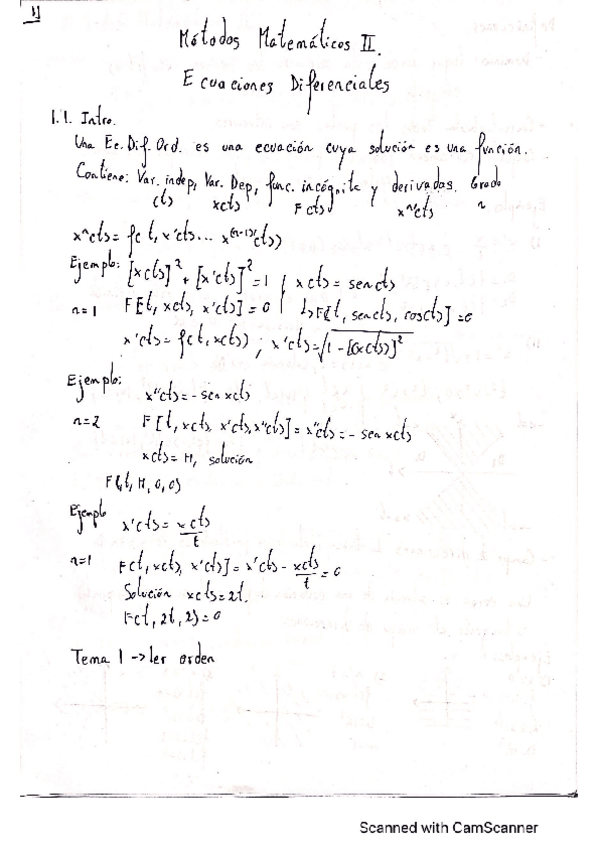 1)
Métodos Matemáticos II.
Ecuaciones Diferenciales
1.1. Intro.
Una Ec. Dif. Ord. es una ecuación cuya solución es una función.
Contiene: Var. indep, Var. Dep, func. incógnita y derivadas. Grado
(t) x(t) F(t) xⁿ(t) n
xⁿ(t) = f(t, x'(t)... x⁽ⁿ⁻¹⁾(t))
Ejemplo: [x(t)]² + [x'(t)]² = 1 / x(t) = sen(t)
n=1 F[t, x(t), x'(t)] = 0 | ↳ F[t, sen(t), cos(t)] = 0
x'(t) = f(t, x(t)) ; x'(t) = √1 - [(x(t))]²
Ejemplo: x''(t) = - sen x(t)
n=2 F[t, x(t), x'(t), x''(t)] = x''(t) = - sen x(t)
x(t) = π, solución
F(t, π, 0, 0)
Ejemplo x'(t) = x(t)/t
n=1 F(t, x(t), x'(t)] = x'(t) - x(t)/t = 0
Solución x(t) = 2t.
F(t, 2t, 2) = 0
Tema 1 -> 1er orden
Scanned with CamScanner